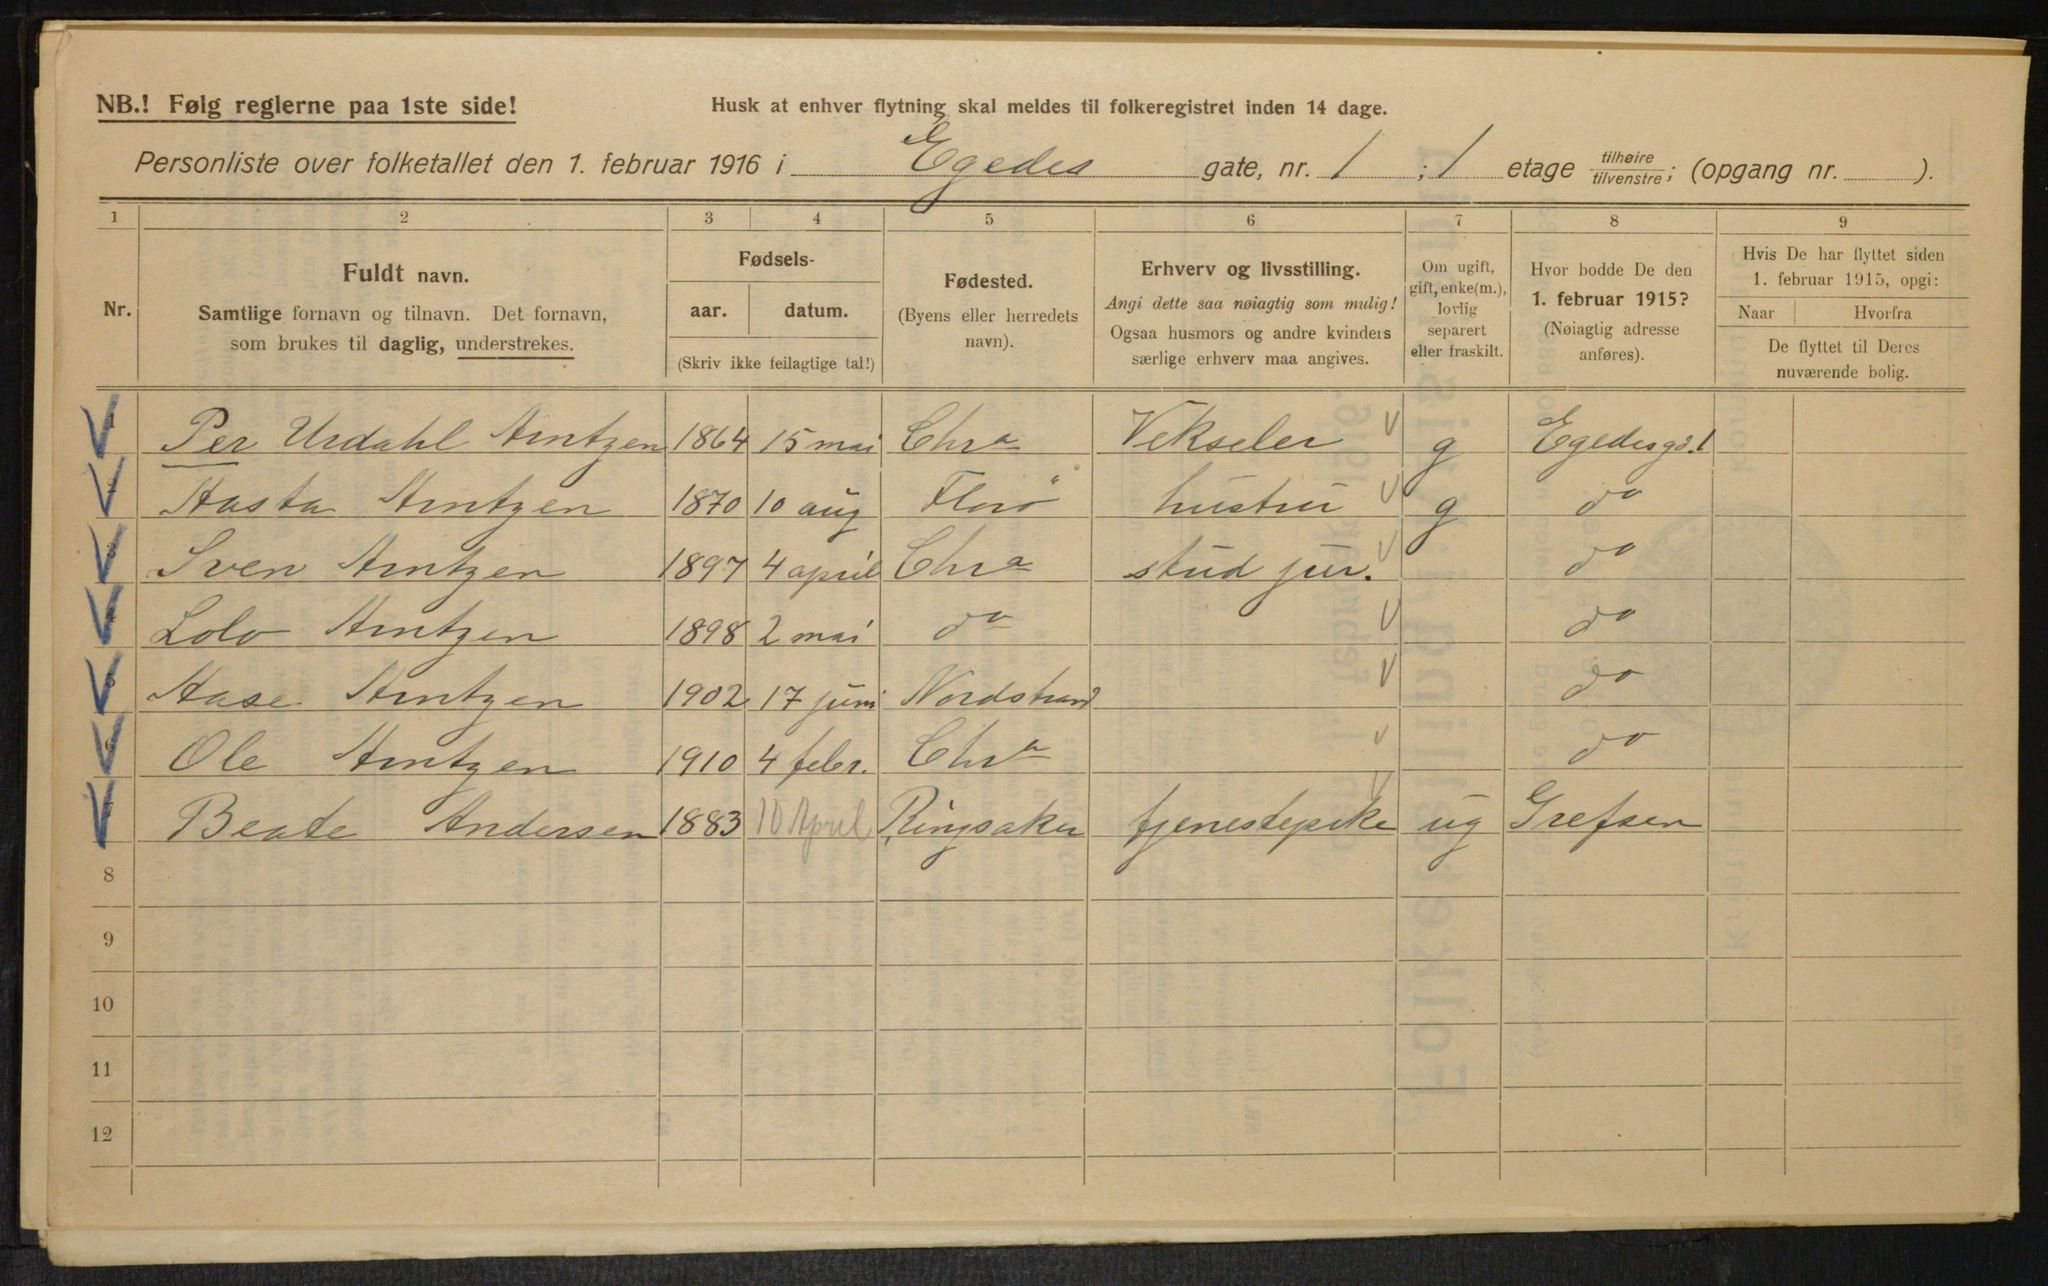 NB.! Følg reglerne paa 1ste side!
Husk at enhver flytning skal meldes til folkeregistret inden 14 dage.
Personliste over folketallet den 1. februar 1916 i Egedes gate, nr. 1 ; 1 etage tilhøire tilvenstre; (opgang nr. ).
1 2 3 4 5 6 7 8 9
Nr.
Fuldt navn.
Samtlige fornavn og tilnavn. Det fornavn,
som brukes til daglig, understrekes.
Fødsels-
aar. datum.
(Skriv ikke feilagtige tal!)
Fødested.
(Byens eller herredets
navn).
Erhverv og livsstilling.
Angi dette saa nøiagtig som mulig!
Ogsaa husmors og andre kvinders
særlige erhverv maa angives.
Om ugift,
gift, enke(m.),
lovlig
separert
eller fraskilt.
Hvor bodde De den
1. februar 1915?
(Nøiagtig adresse
anføres).
Hvis De har flyttet siden
1. februar 1915, opgi:
Naar Hvorfra
De flyttet til Deres
nuværende bolig.
1 Per Urdahl Arntzen 1864 15 mai Chra Vekseler g Egedesgd. 1
2 Aasta Arntzen 1870 10 aug Florö hustru g do
3 Sven Arntzen 1897 4 april Chra stud jur. do
4 Lolo Arntzen 1898 2 mai do do
5 Aase Arntzen 1902 17 juni Nordstrand do
6 Ole Arntzen 1910 4 febr. Chra do
7 Beate Andersen 1883 10 April Ringsaker tjenestepike ug Grefsen
8
9
10
11
12